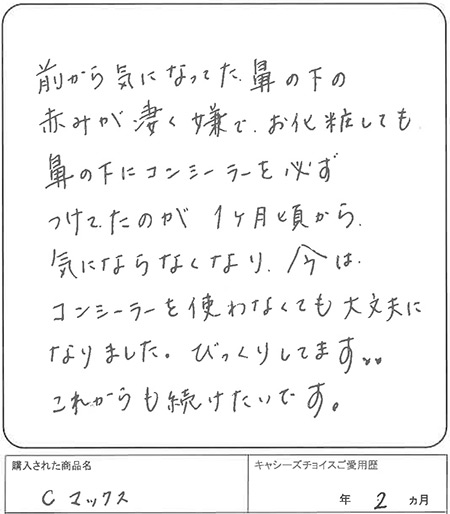 前から気になってた、鼻の下の
赤みが凄く嫌で、お化粧しても
鼻の下にコンシーラーを必ず
つけてたのが 1ヶ月頃から、
気にならなくなり、今は、
コンシーラーを使わなくても大丈夫に
なりました。びっくりしてます。。
これからも続けたいです。
購入された商品名
キャシーズチョイスご愛用歴
C マックス
年 2 ヵ月